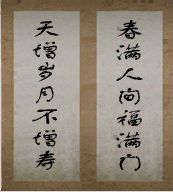 春满人间福满门
天增岁月不增寿